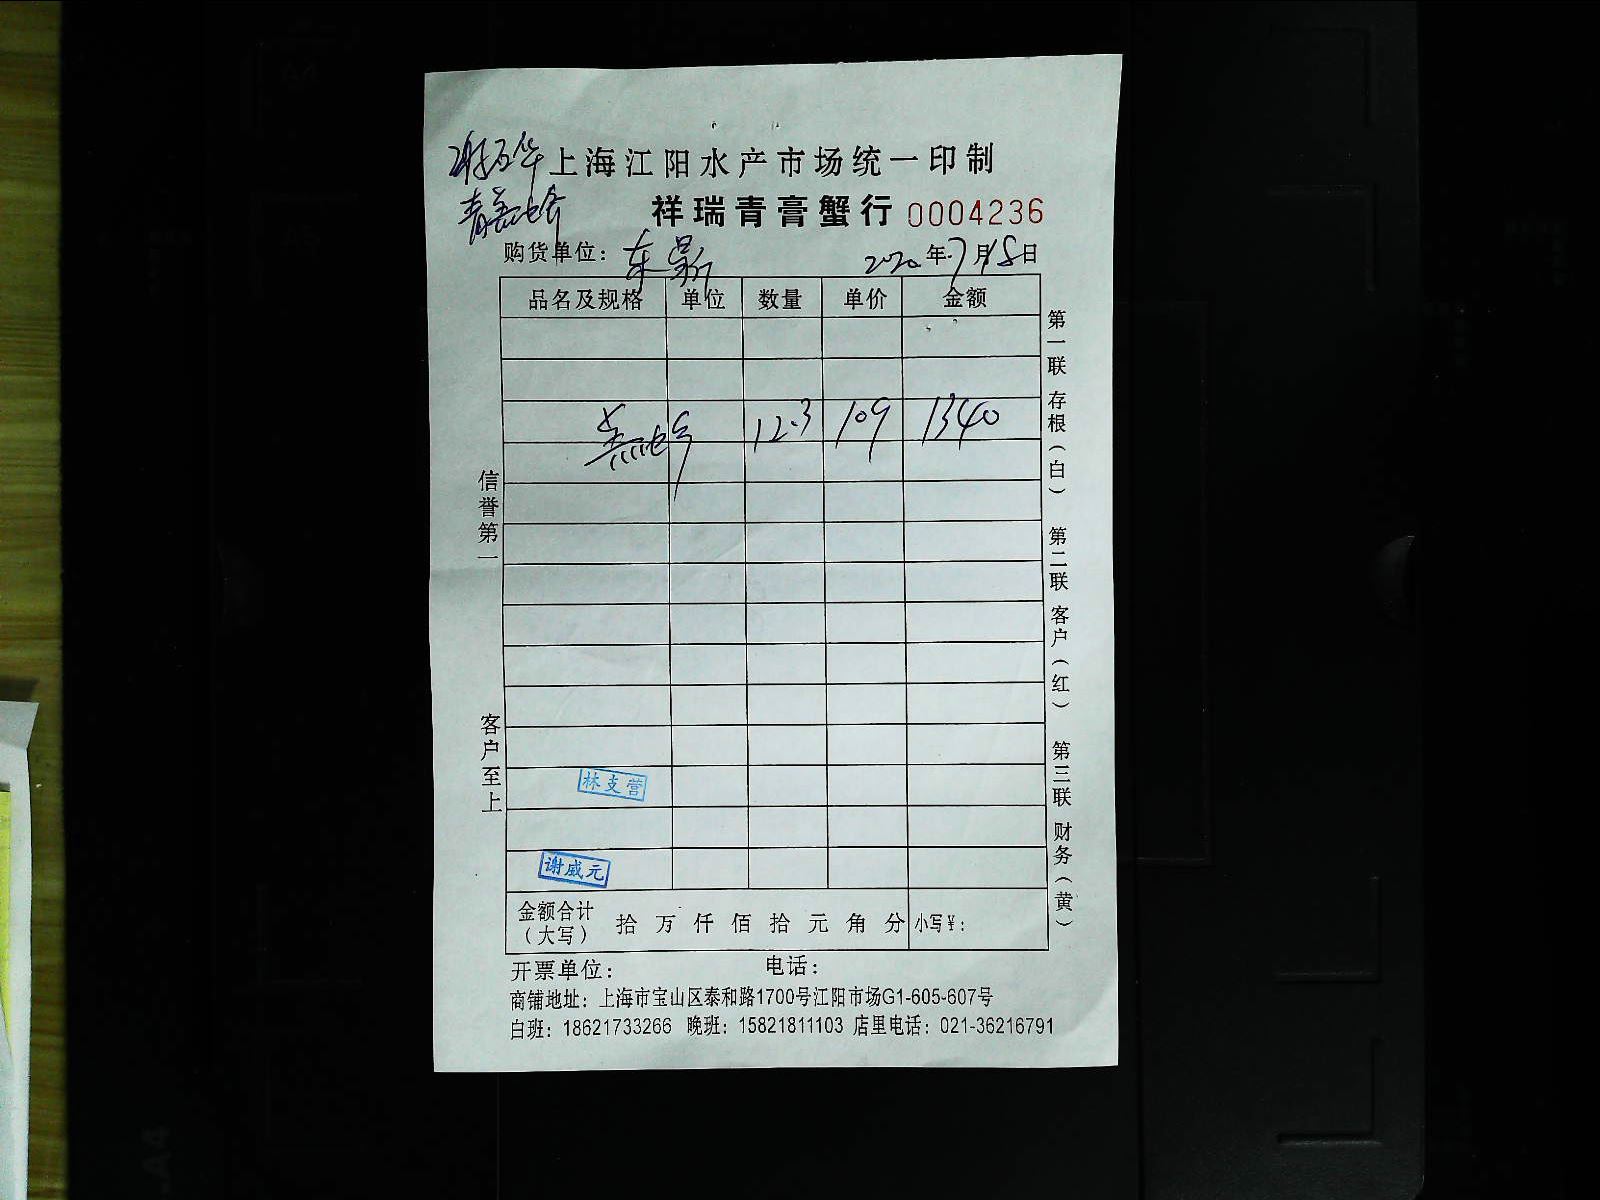 上海江阳水产市场统一印制
祥瑞青膏蟹行 0004236
购货单位：东昊 2020年7月18日
品名及规格 单位 数量 单价 金额
12.3 109 1340
信誉第一
客户至上
第一联 存根（白） 第二联 客户（红） 第三联 财务（黄）
林支营
谢威元
金额合计（大写） 拾 万 仟 佰 拾 元 角 分 小写￥：
开票单位： 电话：
商铺地址：上海市宝山区泰和路1700号江阳市场G1-605-607号
白班：18621733266 晚班：15821811103 店里电话：021-36216791